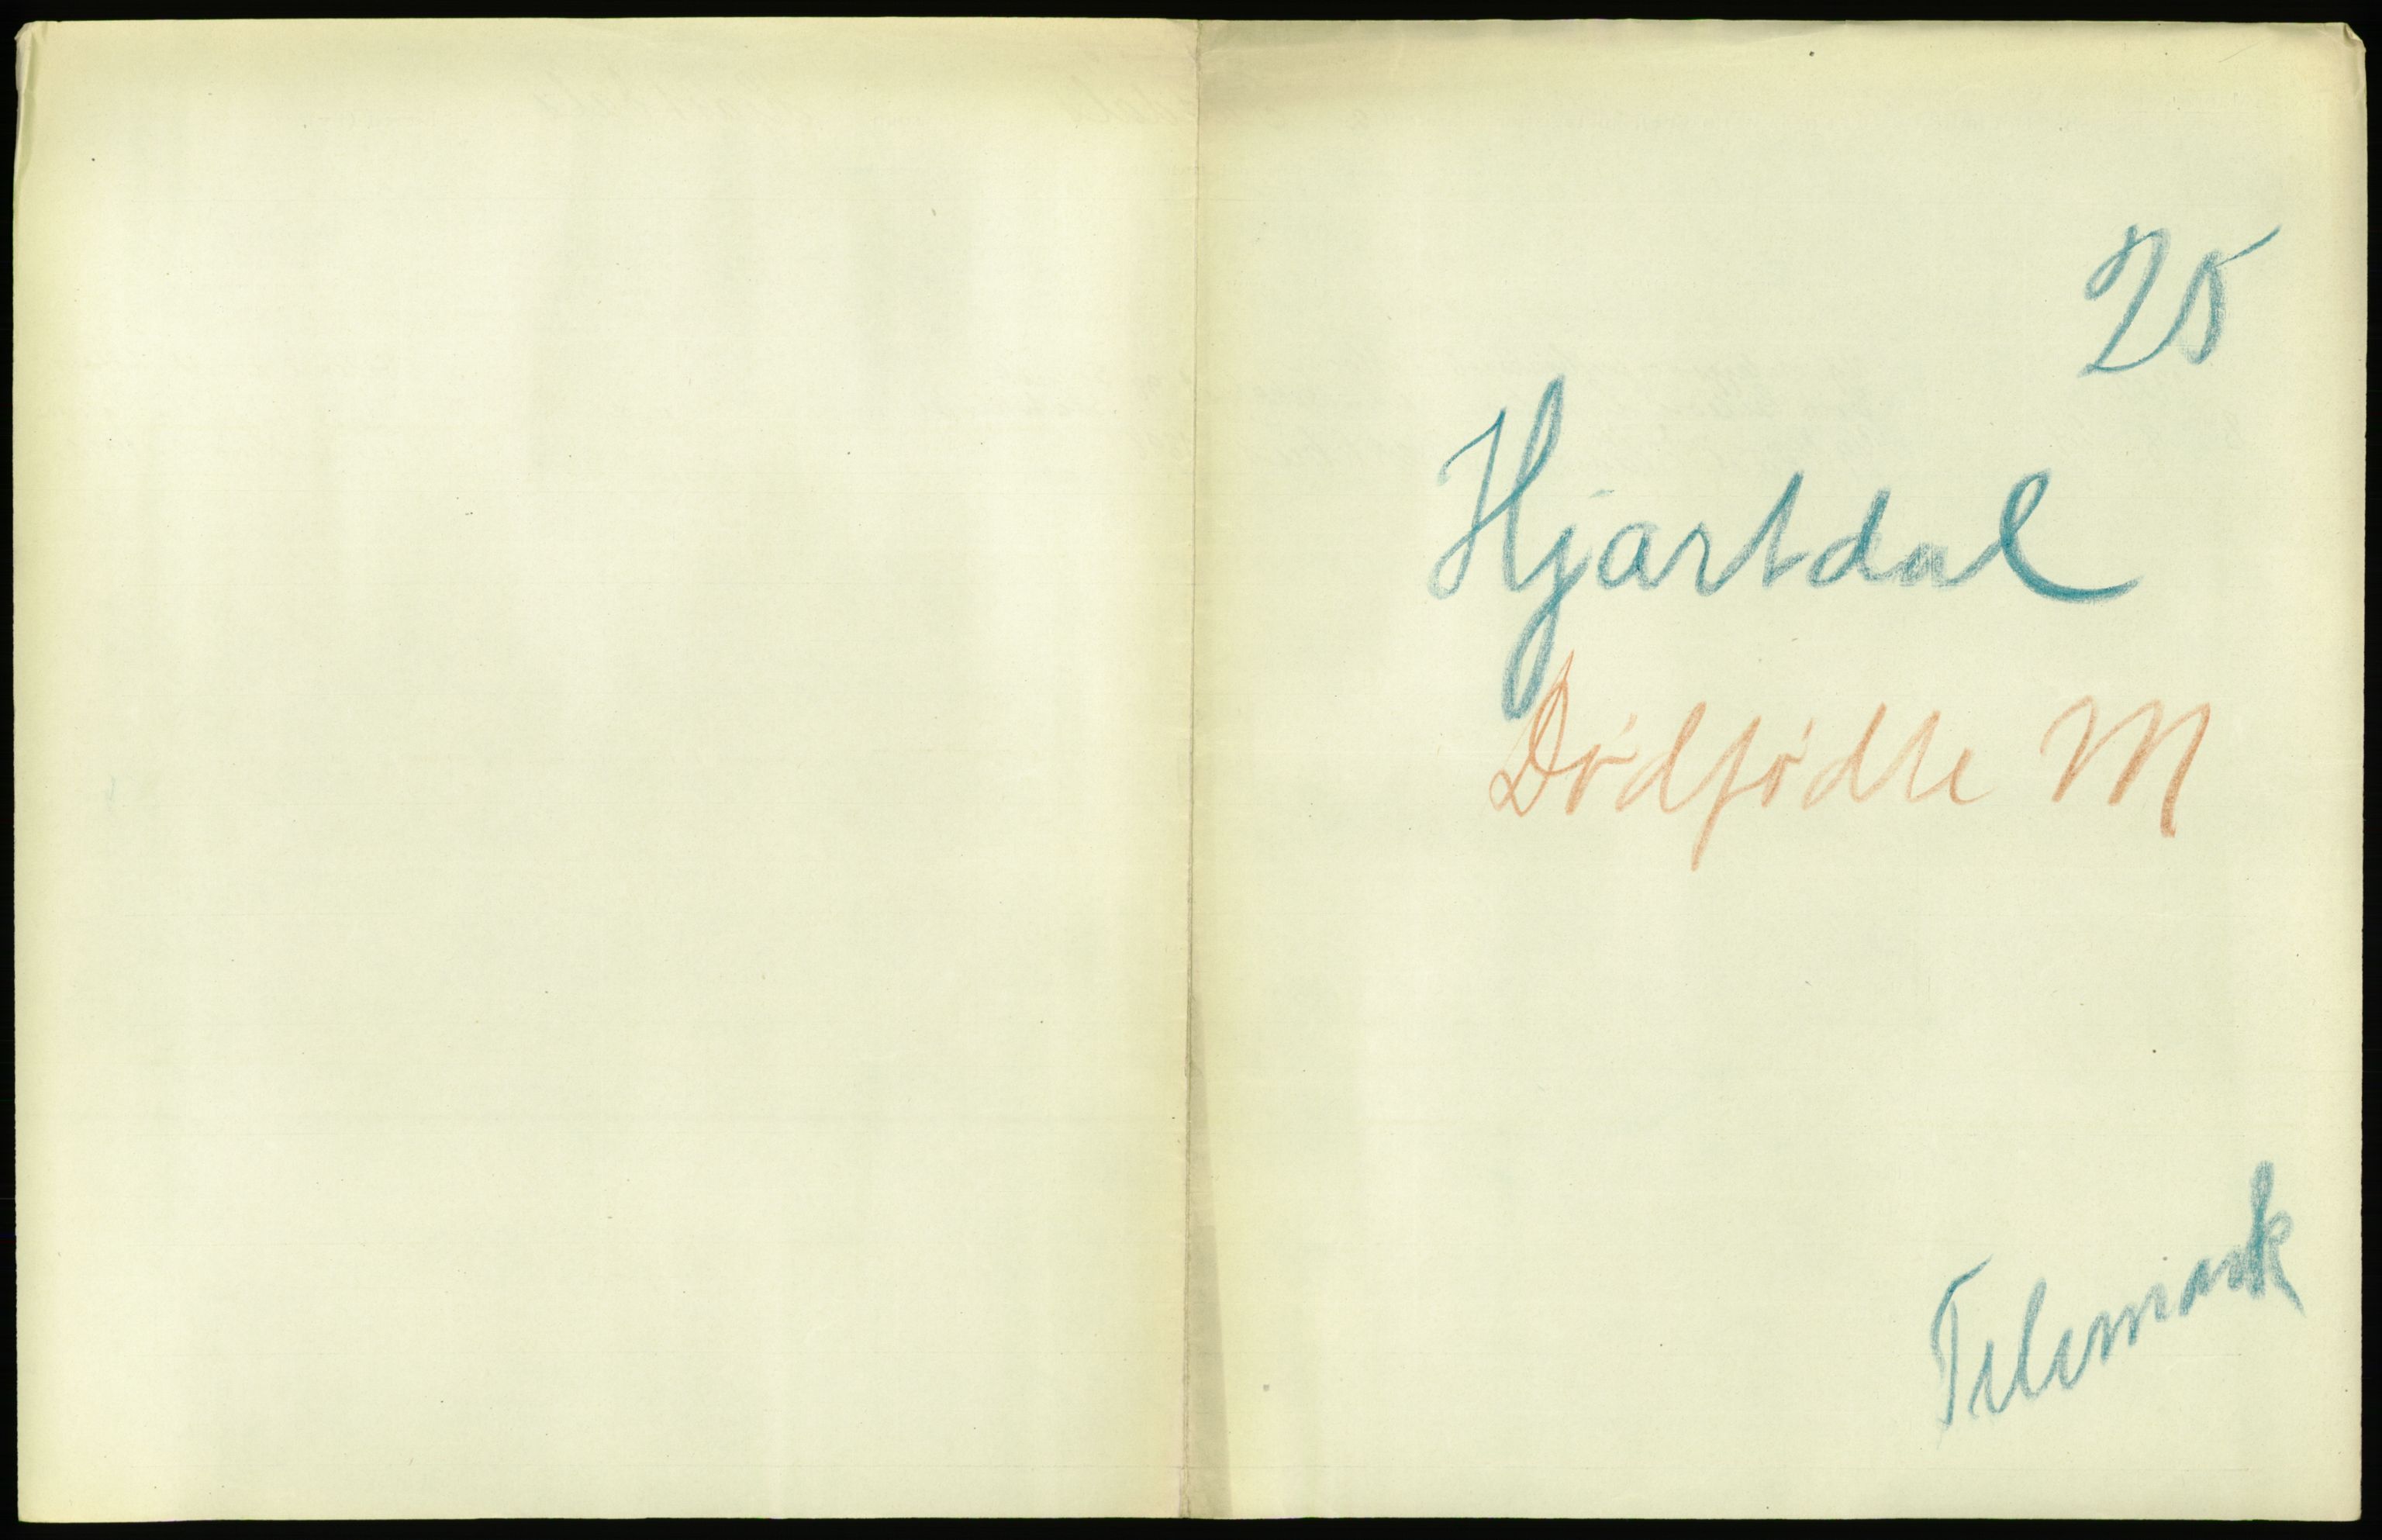 25
Hjartdal
Dødfødte M
Telemark